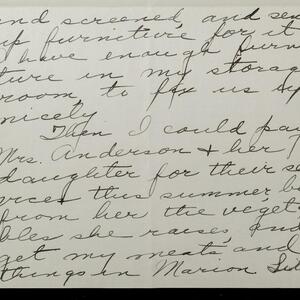 and screened, and send
up furniture for it
I have enough furni
ture in my storage
room, to fix us up
nicely.
Then I could pay
Mrs. Anderson + her
daughter for their se
vices this summer, b
from her the vegeta
bles she raises, and
get my meats, and
things in Marion